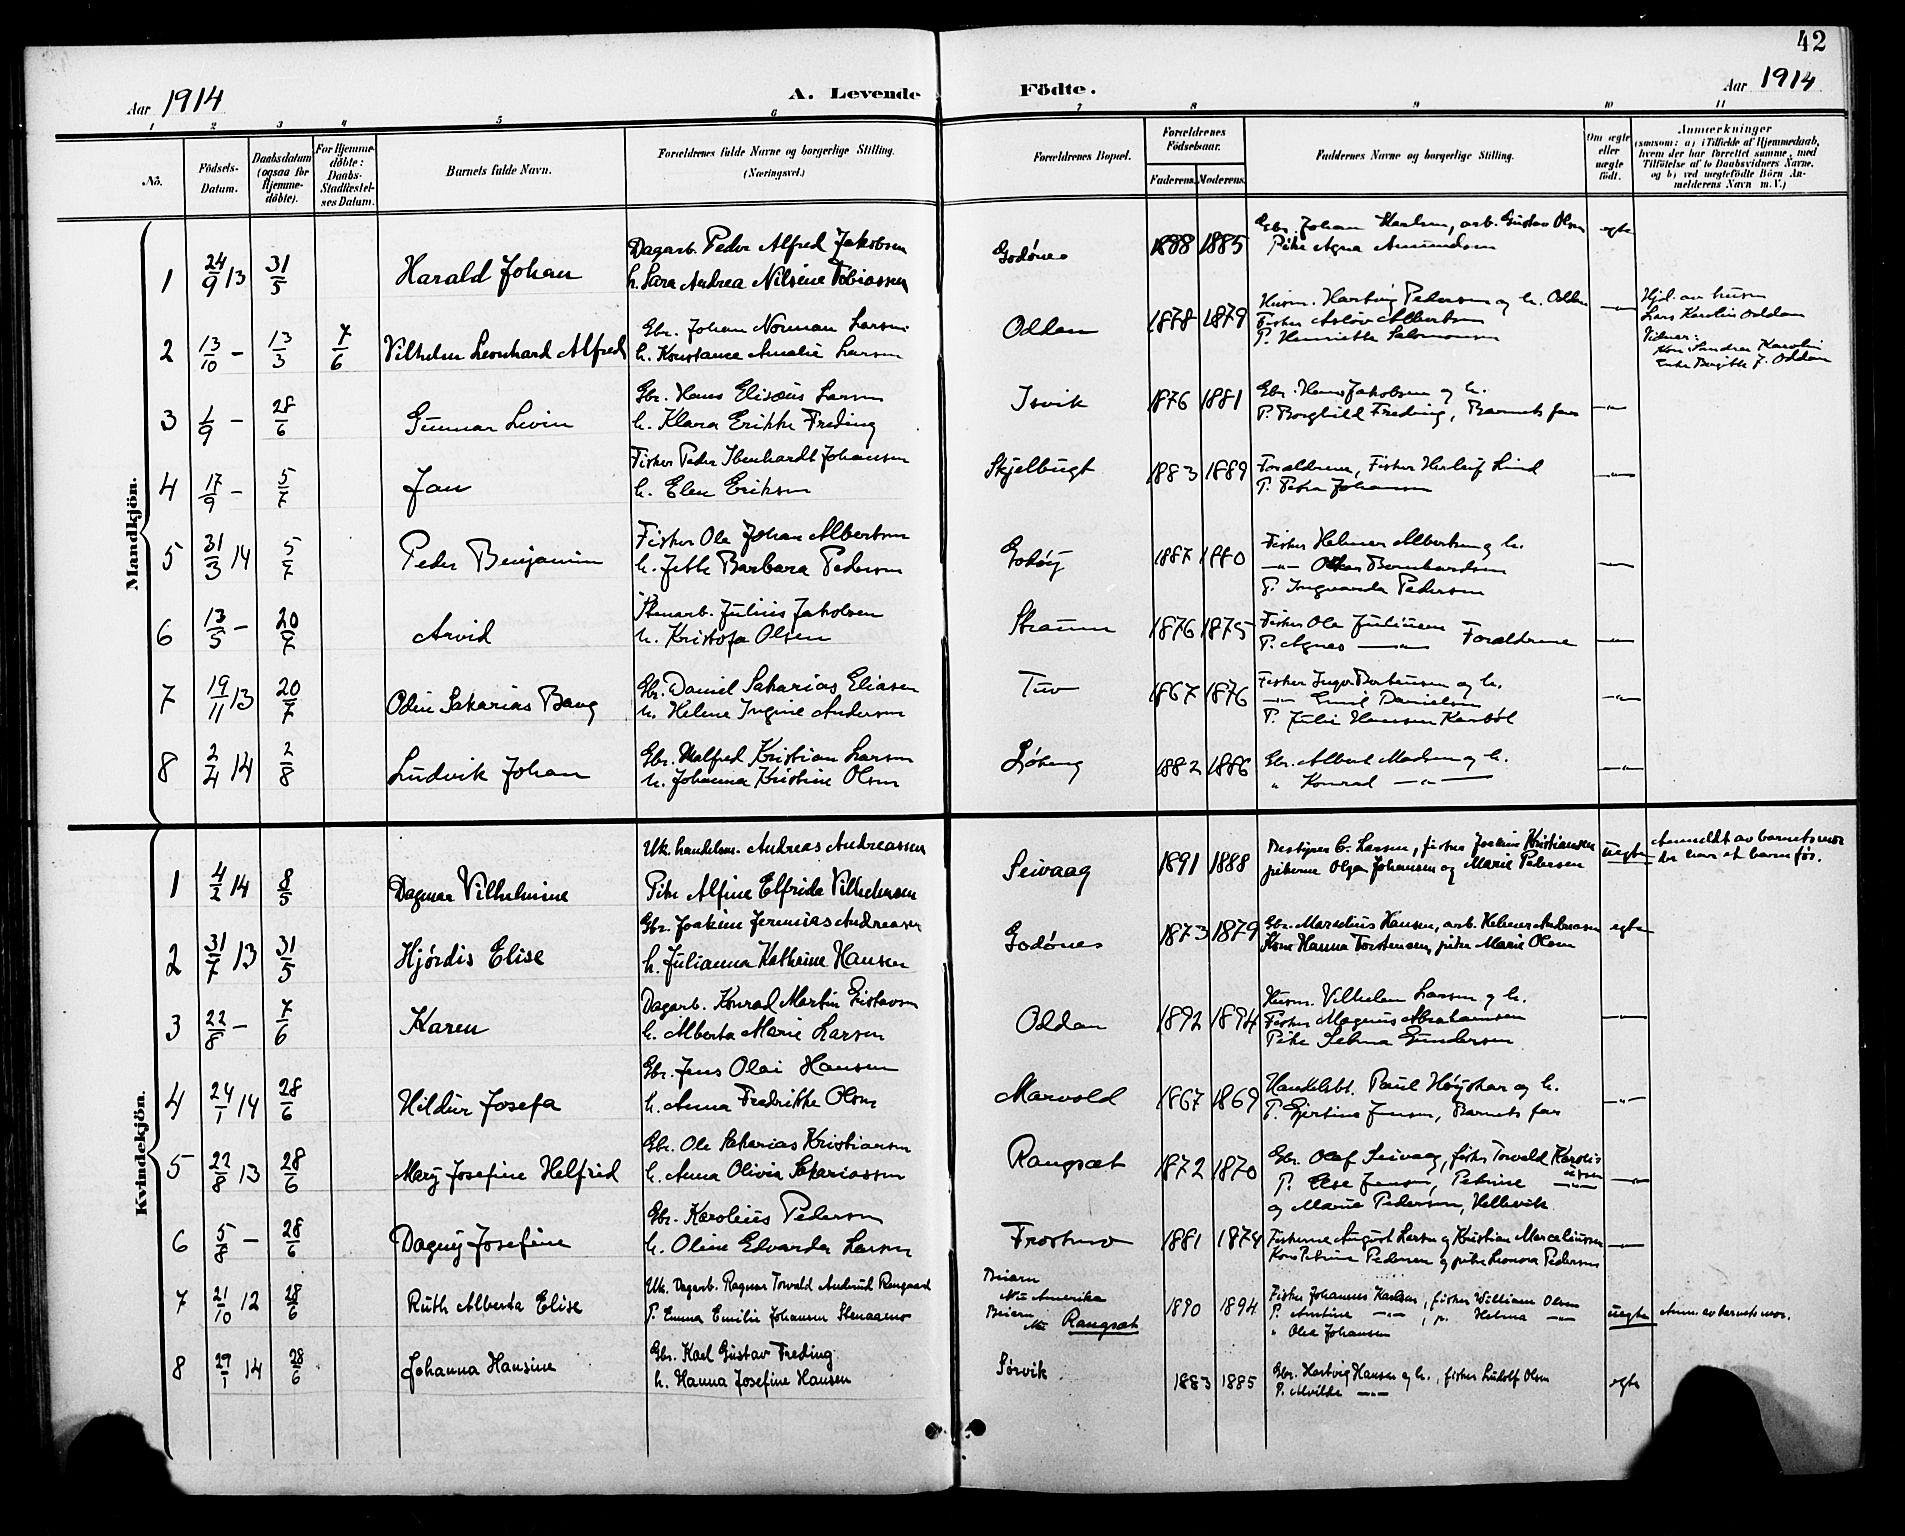 42
Aar 1914
A. Levende Födte.
Aar 1914
1 2 3 4 5 6 7 8 9 10 11
No.
Födsels-Datum.
Daabsdatum (ogsaa for Hjemme-döbte).
For Hjemme-döbte: Daabs-Stadfæstel-ses Datum.
Barnets fulde Navn.
Forældrenes fulde Navne og borgerlige Stilling. (Næringsvei.)
Forældrenes Bopæl.
Forældrenes Födselsaar.
Faderens. Moderens.
Faddernes Navne og borgerlige Stilling.
Om ægte eller uægte födt.
Anmærkninger
(saasom: a) i Tilfælde af Hjemmedaab, hvem der har forrettet samme, med Tilföielse af to Daabsvidners Navne, og b) ved uægtefödte Börn An-melderens Navn m. V.)
Mandkjön.
1 24/9 13 31/5 Harald Johan
Dagarb. Peder Alfred Jakobsen
h. Sara Andrea Nilsine Tobiassen
Godønes 1888 1885
Gbr. Johan Karlsen, arb. Gustav Olsen
Pike Agna Amundsen
egte
2 13/10 - 13/3 7/6 Vilhelm Leonhard Alfred
Gbr. Johan Norman Larsen
h. Konstance Amalie Larsen
Oddan 1878 1879
Husm. Hartvig Pedersen og h. Oddan
Fisker Albertsen
P. Henriette Salomonsen
-"-
Hjd. av husm
Lars Karolin Oddan
Vidner:
Kone Sandra Karolin
Enke Birgitte J. Oddan
3 1/9 - 28/6 Gunnar Levin
Gbr. Hans Elisæus Larsen
h. Klara Erikke Freding
Isvik 1876 1881
Gbr. Hans Jakobsen og h.
P. Borghild Freding, Barnets far
-"-
4 17/9 - 5/7 Jan
Fisker Peder Iberhardt Johansen
h. Elen Eriksen
Skjelbugt 1883 1889
Forældrene, Fisker Herleif Lind
P. Petra Johansen
-"-
5 31/3 14 5/7 Peder Benjamin
Fisker Ole Johan Albertsen
h. Jette Barbara Pedersen
Godøy 1887 1880
Fisker Helmer Albertsen og h.
-"- Oskar Bernhardsen
P. Ingvarda Pedersen
-"-
6 13/5 - 20/7 Arvid
Stenarb. Julius Jakobsen
h. Kristofa Olsen
Straum 1876 1875
Fisker Ole Juliusen
P. Agnes -"- Forældrene
-"-
7 19/11 13 20/7 Odin Sakarias Bang
Gbr. Daniel Sakarias Eliasen
h. Helene Ingine Andersen
Tuv 1867 1876
Fisker Ingv. Berhusen og h.
-"- Emil Danielsen
P. Julie Hansen Karbøl
-"-
8 2/4 14 2/8 Ludvik Johan
Gbr. Malfred Kristian Larsen
h. Johanna Kristine Olsen
1882 1886
Gbr. Albert Madsen og h.
" Konrad -"-
-"-
Kvindekjön.
1 4/2 14 8/5 Dagmar Vilhelmine
Uk. handelsm. Andreas Andreassen
Pike Alfine Elfrida Vilhelmsen
Seivaag 1891 1888
Bestyrer C. Larsen, fisker Joakim Kristiansen
pikerne Olga Johansen og Marie Pedersen
uegte
Anmeldt av barnets mor
der har et barn før.
2 31/7 13 31/5 Hjørdis Elise
Gbr. Joakim Jeremias Andreasen
h. Julianna Kathrine Hansen
Godønes 1873 1879
Gbr. Marselius Hansen, arb. Helmer Andreasen
Kone Hanna Torstensen, pike Marie Olsen
egte
3 22/8 - 7/6 Karen
Dagarb. Konrad Martin Gustavsen
h. Alberta Marie Larsen
Oddan 1892 1894
Husm. Vilhelm Larsen og h.
Fisker Magnus Abrahamsen
Pike Selma Gundersen
-"-
4 24/1 14 28/6 Hildur Josefa
Gbr. Jens Olai Hansen
h. Anna Fredrikke Olsen
Marvold 1867 1869
Handelsbt. Paul Høyskar og h.
P. Gjertine Jensen, Barnets far
-"-
5 22/8 13 28/6 Mary Josefine Helfrid
Gbr. Ole Sakarias Kristiansen
h. Anna Olivia Sakariassen
Rangsæt 1872 1870
Gbr. Olaf Seivaag, fisker Torvald Karoliussen
P. Else Jensen, Petrine -"-
og Marie Pedersen, Hellevik
-"-
6 5/8 - 28/6 Dagny Josefine
Gbr. Karolius Pedersen
h. Oline Edvarda Larsen
Frostmo 1881 1874
Fiskerne August Larsen og Kristian Marcelinssen
Kone Petrina Pedersen og pike Leonora Pedersen
-"-
7 21/10 12 28/6 Ruth Alberta Elise
Uk. Dagarb. Ragnar Torvald Anderud Rengaard
P. Emma Emilie Johansen Stenaamo
Beiarn
Nu Amerika
Beiarn
Nu Rangsæt
1890 1894
Fisker Johannes Karlsen, fisker William Olsen
P. Antine -"-, p. Helma -"-
" Olea Johansen
uegte
Anm. av barnets mor.
8 29/1 14 28/6 Johanna Hansine
Gbr. Karl Gustav Freding
h. Hanna Josefine Hansen
Sørvik 1883 1885
Gbr. Hartvig Hansen og h., fisker Ludolf Olsen
P. Alvilde -"-
egte